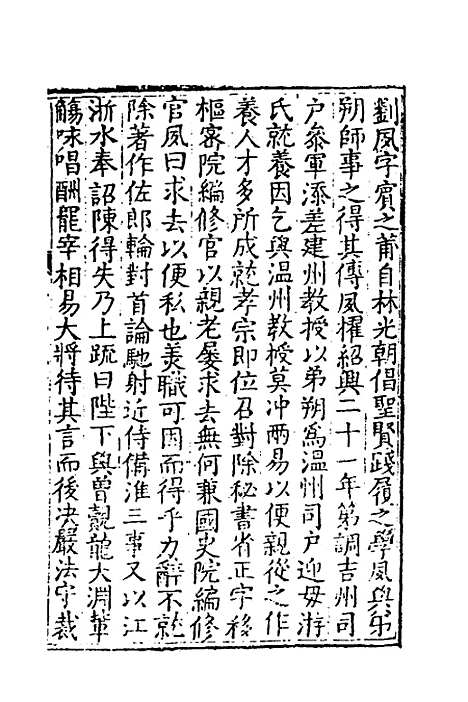 劉夙字賓之莆自林光朝倡聖賢踐履之學夙與弟
朔師事之得其傳夙擢紹興二十一年第調吉州司
户叅軍添差建州教授以弟朔爲温州司户迎母游
氏就養因乞與温州教授莫冲兩易以便親從之作
養人才多所成就孝宗即位召對除秘書省正字移
樞宻院編修官以親老屡求去無何兼國史院編修
官夙曰求去以便私也美職可因而得乎力辭不就
除著作佐郎輪對首論馳射近侍備淮三事又以江
浙水奉詔陳得失乃上疏曰陛下與曾覿龍大淵軰
觴咏唱酬罷宰相易大將待其言而後决嚴法守裁